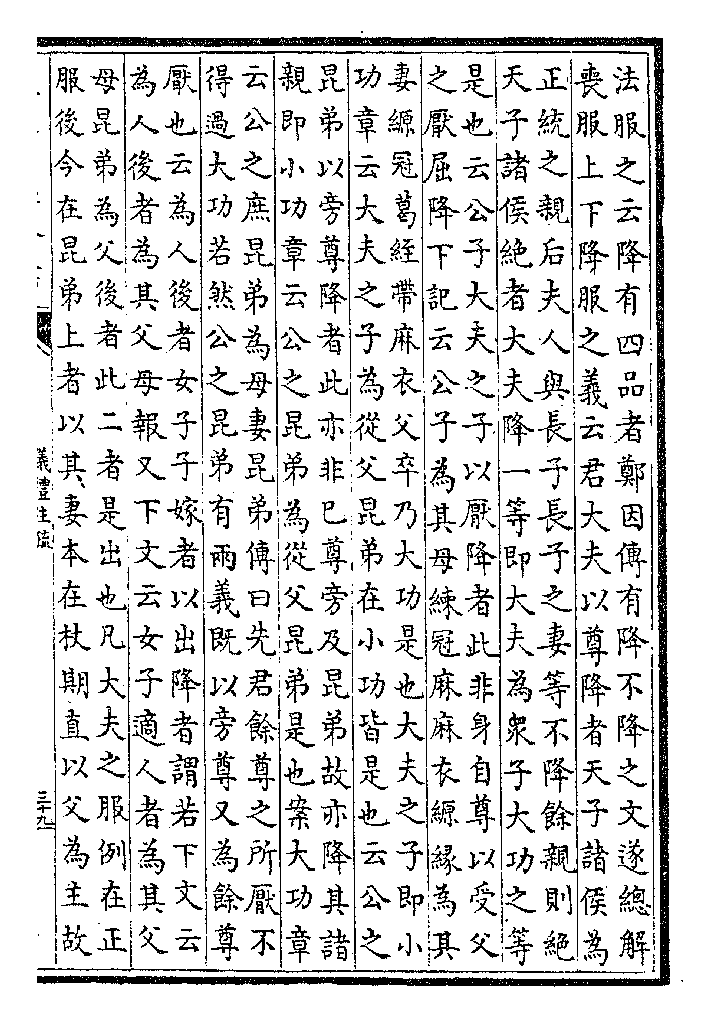 法服之云降有四品者鄭因傳有降不降之文遂總解
喪服上下降服之義云君大夫以尊降者天子諸侯為
正統之親后夫人與長子長子之妻等不降餘親則絕
天子諸侯絕者大夫降一等即大夫為衆子大功之等
是也云公子大夫之子以厭降者此非身自尊以受父
之厭屈降下記云公子為其母練冠麻麻衣縓緣為其
妻縓冠葛絰帶麻衣父卒乃大功是也大夫之子即小
功章云大夫之子為從父昆弟在小功皆是也云公之
昆弟以旁尊降者此亦非已尊旁及昆弟故亦降其諸
親即小功章云公之昆弟為從父昆弟是也案大功章
云公之庶昆弟為母妻昆弟傳曰先君餘尊之所厭不
得過大功若然公之昆弟有兩義既以旁尊又為餘尊
厭也云為人後者女子子嫁者以出降者謂若下文云
為人後者為其父母報又下文云女子適人者為其父
母昆弟為父後者此二者是出也凡大夫之服例在正
服後今在昆弟上者以其妻本在杖期直以父為主故
儀禮注疏
三十九